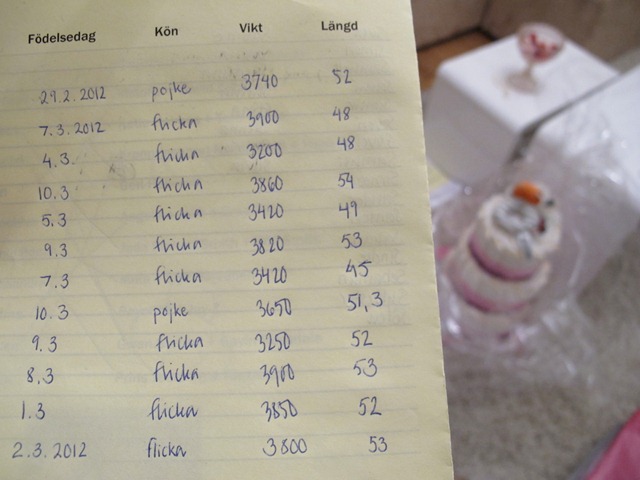 Födelsedag Kön Vikt Längd
29.2.2012 pojke 3740 52
7.3.2012 flicka 3900 48
4.3. flicka 3200 48
10.3 flicka 3860 54
5.3 flicka 3420 49
9.3 flicka 3820 53
7.3 flicka 3420 45
10.3 pojke 3650 51,3
9.3 flicka 3250 52
8.3 flicka 3900 53
1.3 flicka 3850 52
2.3.2012 flicka 3800 53